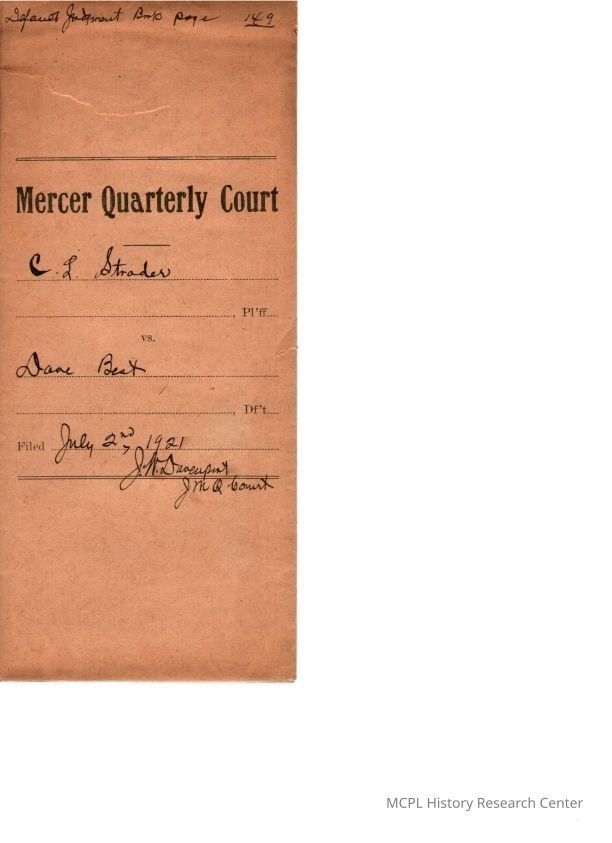 Default Judgment Book page 149
Mercer Quarterly Court
C. L. Strader
, Pl'ff.
vs.
Dave Best
, Df't.
Filed July 2nd, 1921
J. W. Davenport
J M Q Court
MCPL History Research Center